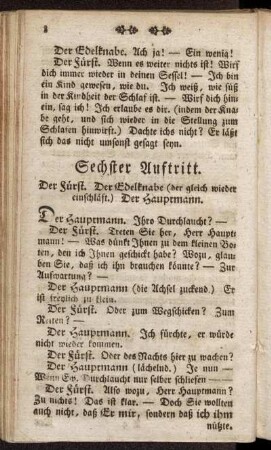 8
Der Edelknabe. Ach ja! — Ein wenig!
Der Fürst. Wenn es weiter nichts ist! Wirf
dich immer wieder in deinen Sessel! — Ich bin
ein Kind gewesen, wie du. Ich weiß, wie süß
in der Kindheit der Schlaf ist. — Wirf dich hin-
ein, sag ich! Ich erlaube es dir. (indem der Kna-
be geht, und sich wieder in die Stellung zum
Schlafen hinwirft.) Dachte ichs nicht? Er läßt
sich das nicht umsonst gesagt seyn.
Sechster Auftritt.
Der Fürst. Der Edelknabe (der gleich wieder
einschläft.) Der Hauptmann.
Der Hauptmann. Ihro Durchlaucht? —
Der Fürst. Treten Sie her, Herr Haupt-
mann! — Was dünkt Ihnen zu dem kleinen Bo-
ten, den ich Ihnen geschickt habe? Wozu, glau-
ben Sie, daß ich ihn brauchen könnte? — Zur
Aufwartung? —
Der Hauptmann (die Achsel zuckend.) Er
ist freylich zu klein.
Der Fürst. Oder zum Wegschicken? Zum
Reiten? —
Der Hauptmann. Ich fürchte, er würde
nicht wieder kommen.
Der Fürst. Oder des Nachts hier zu wachen?
Der Hauptmann (lächelnd.) Je nun —
Wenn Ew. Durchlaucht nur selber schliefen —
Der Fürst. Also wozu, Herr Hauptmann?
Zu nichts! Das ist klar. — Doch Sie wollten
auch nicht, daß Er mir, sondern daß ich ihm
nützte.